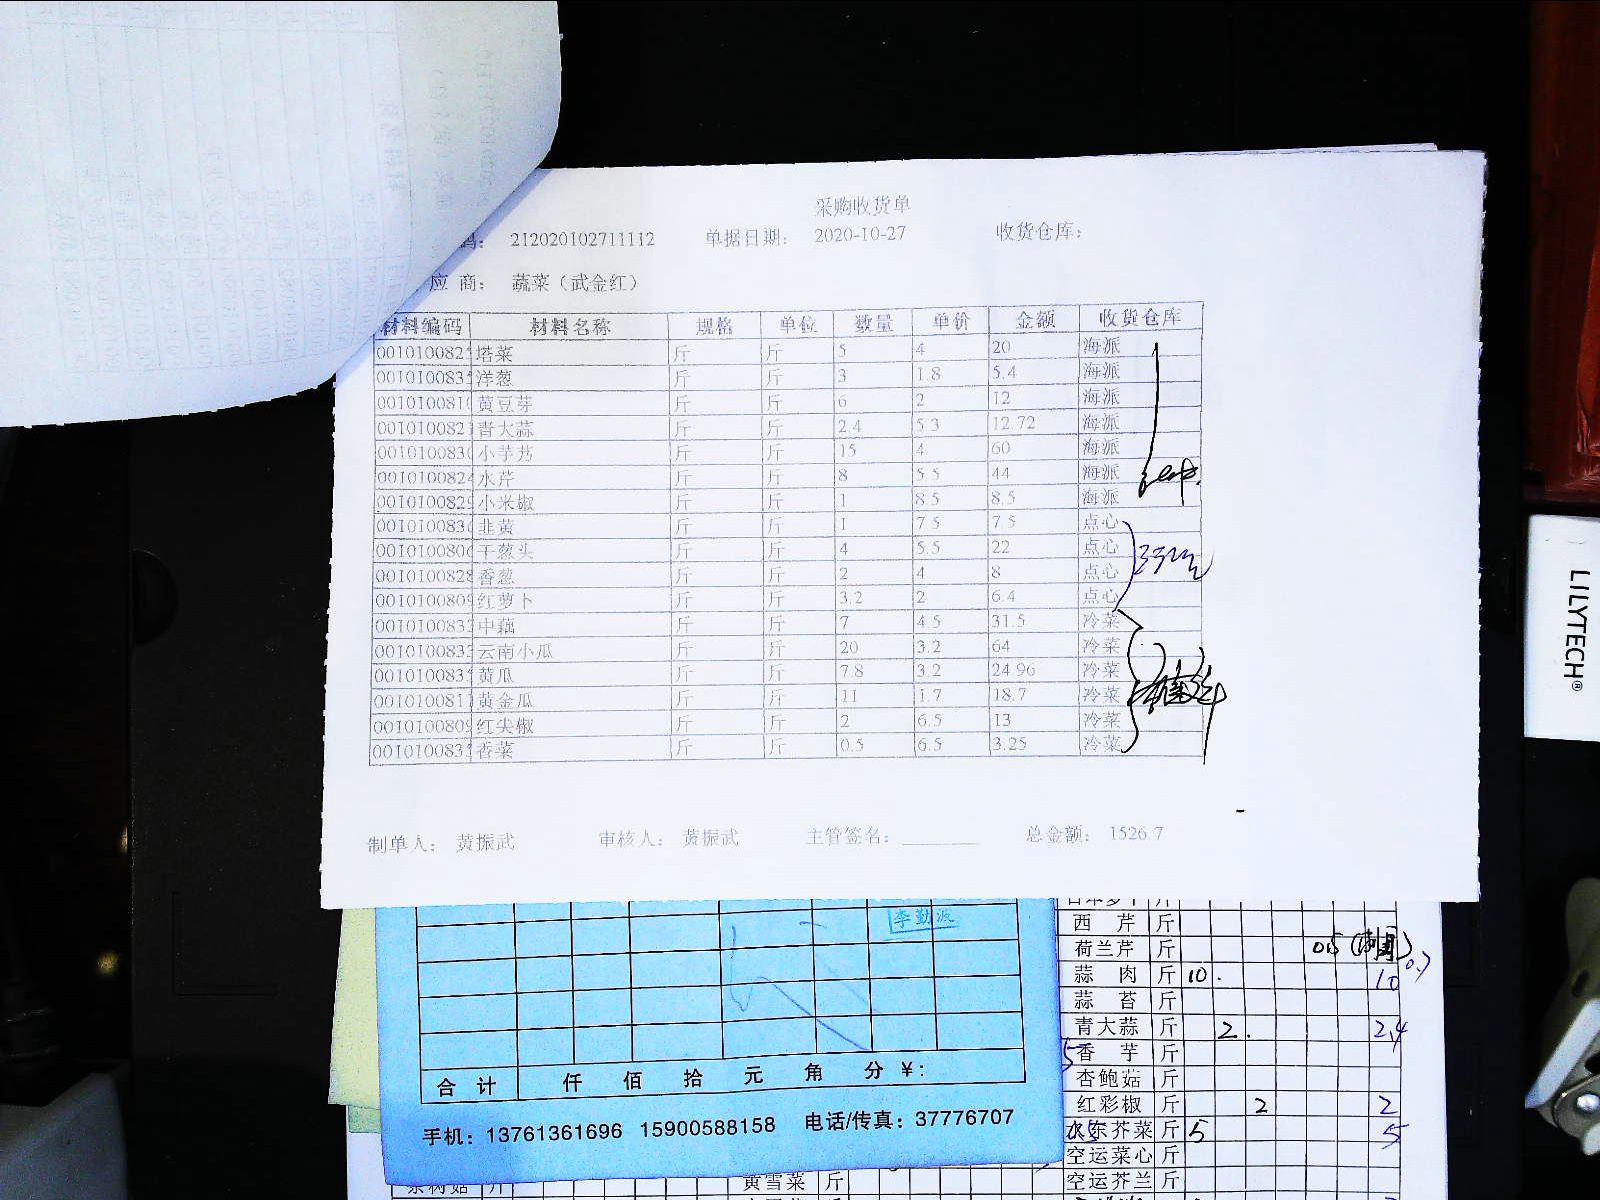 采购收货单
码： 212020102711112 单据日期： 2020-10-27 收货仓库：
应 商： 蔬菜（武金红）
材料编码 材料名称 规格 单位 数量 单价 金额 收货仓库
0010100825 塔菜 斤 斤 5 4 20 海派
001010083 洋葱 斤 斤 3 1.8 5.4 海派
001010081 黄豆芽 斤 斤 6 2 12 海派
001010082 青大蒜 斤 斤 2.4 5.3 12.72 海派
001010083 小芋艿 斤 斤 15 4 60 海派
001010082 水芹 斤 斤 8 5.5 44 海派
001010082 小米椒 斤 斤 1 8.5 8.5 海派
001010083 韭黄 斤 斤 1 7.5 7.5 点心
001010080 干葱头 斤 斤 4 5.5 22 点心
001010082 香葱 斤 斤 2 4 8 点心
001010080 红萝卜 斤 斤 3.2 2 6.4 点心
001010083 中藕 斤 斤 7 4.5 31.5 冷菜
001010083 云南小瓜 斤 斤 20 3.2 64 冷菜
001010083 黄瓜 斤 斤 7.8 3.2 24.96 冷菜
001010081 黄金瓜 斤 斤 11 1.7 18.7 冷菜
001010080 红尖椒 斤 斤 2 6.5 13 冷菜
001010083 香菜 斤 斤 0.5 6.5 3.25 冷菜
制单人： 黄振武 审核人： 黄振武 主管签名： 总金额： 1526.7
LILYTECH®
李勤波
合 计 仟 佰 拾 元 角 分 ¥：
手机：13761361696 15900588158 电话/传真：37776707
西 芹 斤
荷兰芹 斤
蒜 肉 斤 10. 10
蒜 苔 斤
青大蒜 斤 2. 2.4
香 芋 斤
杏鲍菇 斤
红彩椒 斤 2 2
水东芥菜 斤 5 5
空运菜心 斤
黄雪菜 斤 空运芥兰 斤